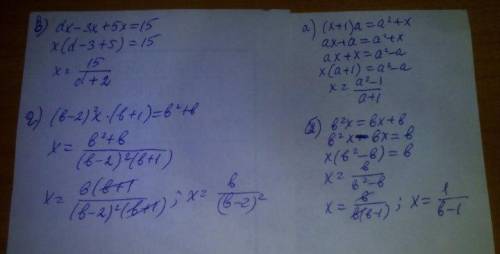 в) dx-3x+5x=15
x(d-3+5)=15
x= 15/(d+2)
г) (b-2)²x·(b+1)=b²+b
x= (b²+b)/((b-2)²(b+1))
x= b(b+1)/((b-2)²(b+1)) ; x= b/(b-2)²
а) (x+1)a=a²+x
ax+a=a²+x
ax+x=a²-a
x(a+1)=a²-a
x= (a²-1)/(a+1)
б) b²x=bx+b
b²x-bx=b
x(b²-b)=b
x= b/(b²-b)
x= b/(b(b-1)) ; x= 1/(b-1)